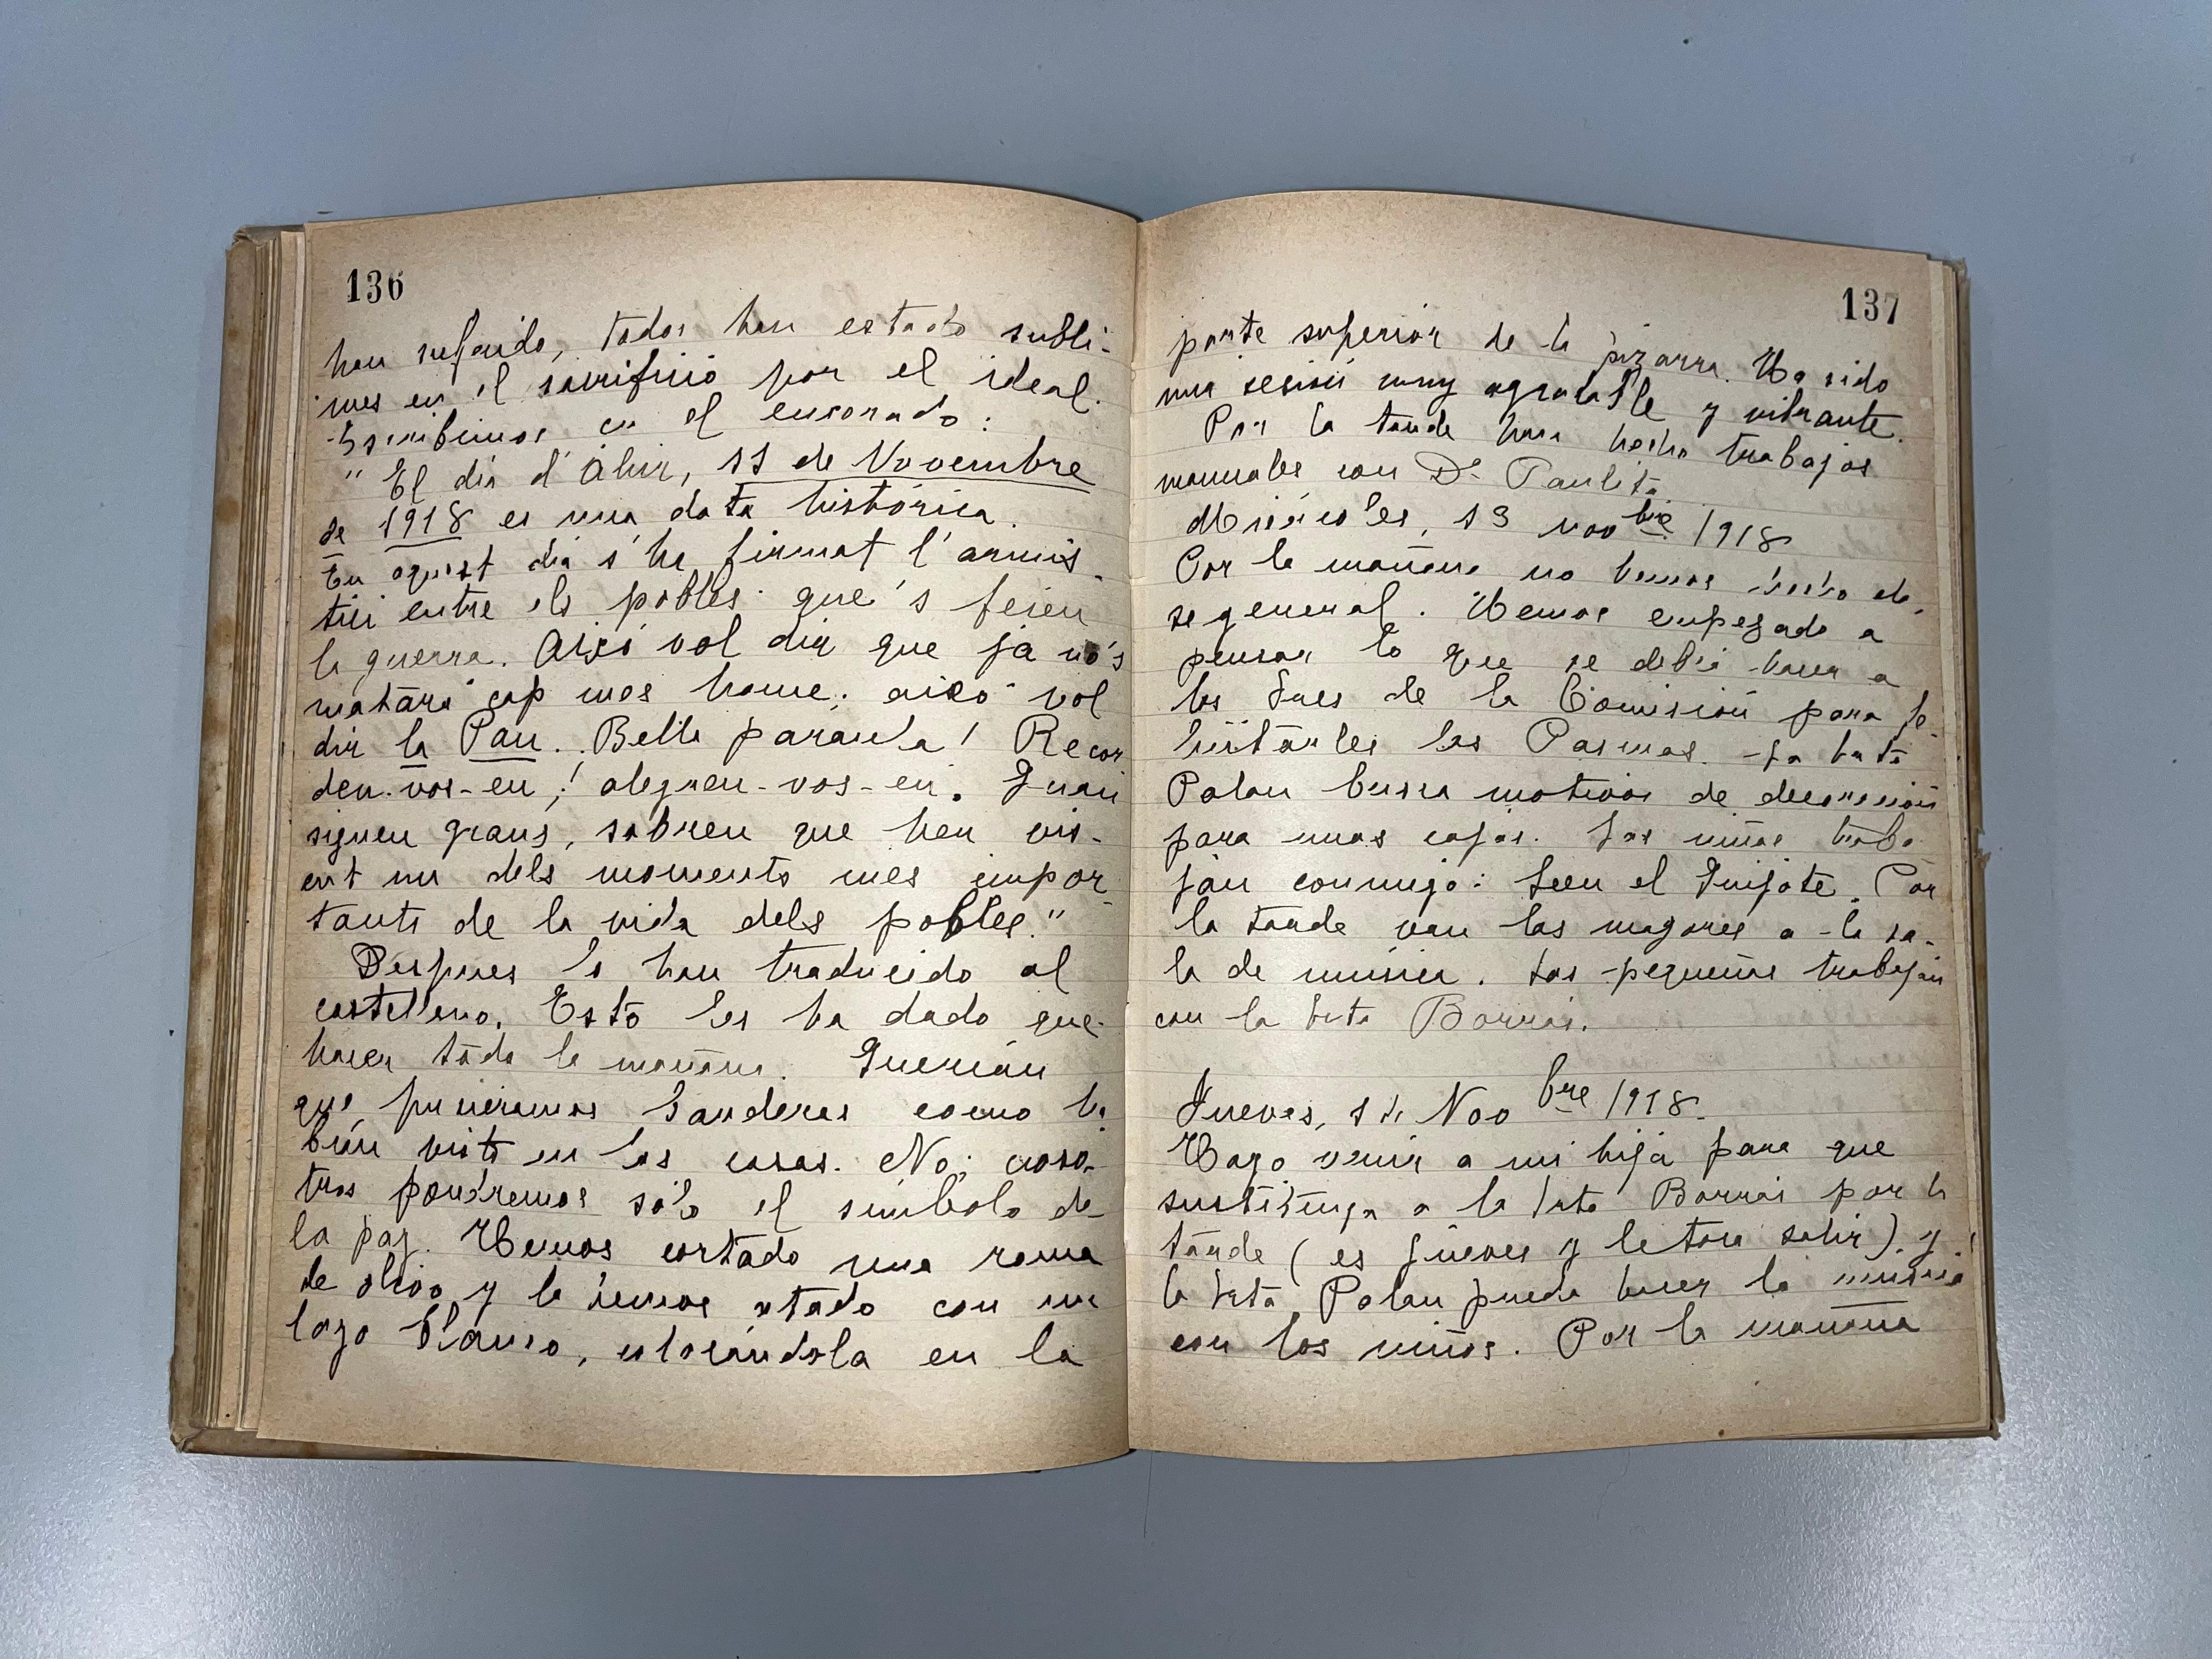 136
han sufrido, todos han estado subli-
mes en el sacrificio por el ideal.
Escribimos en el encerado:
" El dia d'ahir, 11 de Novembre
de 1918 es una data històrica.
En aquest dia s'ha firmat l'armis-
tici entre els pobles que's feien
la guerra. Aixó vol dir que ja no's
matará cap mes home; aixó vol
dir la Pau. Bella paraula! Recor
deu-vos-en; alegreu-vos-en. Quan
sigueu grans, sabreu que heu vis-
cut un dels moments mes impor-
tants de la vida dels pobles."
Despues lo han traducido al
castellano. Esto les ha dado que
hacer toda la mañana. Querian
que pusieramos banderas como ha
bían visto en las casas. No; noso-
tros pondremos sólo el simbolo de
la paz. Hemos cortado una rama
de olivo y la hemos atado con un
lazo blanco, colocándola en la
137
parte superior de la pizarra. Ha sido
una sesión muy agradable y vibrante.
Por la tarde han hecho trabajos
manuales con Dª Paulita.
Miércoles, 13 novbre 1918
Por la mañana no hemos hecho cla-
se general. Hemos empezado a
pensar lo que se debia hacer a
los Sres de la Comisión para fe-
licitarles las Pascuas. La Srta
Palau busca motivos de decoración
para unas cajas. Las niñas traba
jan conmigo: Leen el Quijote. Por
la tarde van las mayores a la sa-
la de música. Las pequeñas trabajan
con la Srta Borrás.
Jueves, 14 Novbre 1918.
Hago venir a mi hija para que
sustituya a la Srta Borrás por la
tarde (es jueves y le toca salir) y
la Srta Palau pueda hacer la música
con los niños. Por la mañana